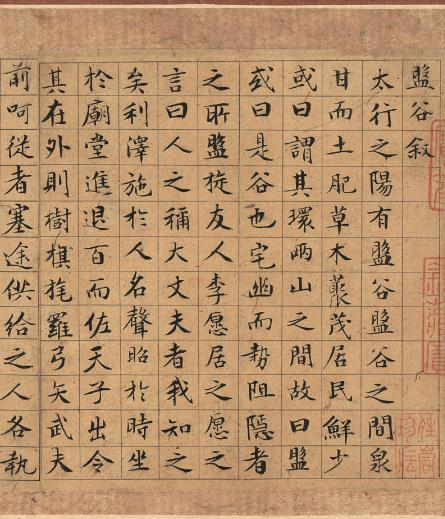 盤谷叙
太行之陽有盤谷盤谷之間泉
甘而土肥草木藂茂居民鮮少
或曰謂其環兩山之間故曰盤
或曰是谷也宅幽而勢阻隱者
之所盤旋友人李愿居之愿之
言曰人之稱大丈夫者我知之
矣利澤施於人名聲昭於時坐
於廟堂進退百而佐天子出令
其在外則樹旗旄羅弓矢武夫
前呵從者塞途供給之人各執